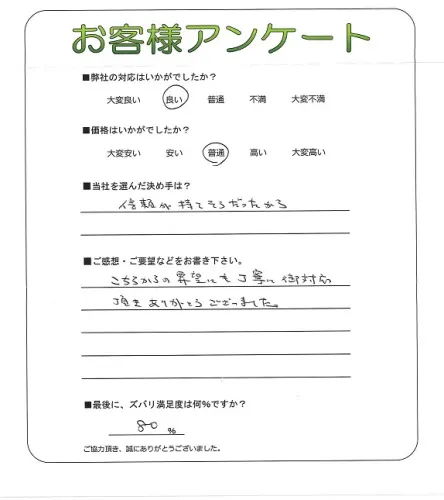 お客様アンケート
■弊社の対応はいかがでしたか？
大変良い 良い 普通 不満 大変不満
■価格はいかがでしたか？
大変安い 安い 普通 高い 大変高い
■当社を選んだ決め手は？
信頼が持てそうだったから
■ご感想・ご要望などをお書き下さい。
こちらからの要望にも丁寧に御対応
頂きありがとうございました。
■最後に、ズバリ満足度は何%ですか？
80 %
ご協力頂き、誠にありがとうございました。